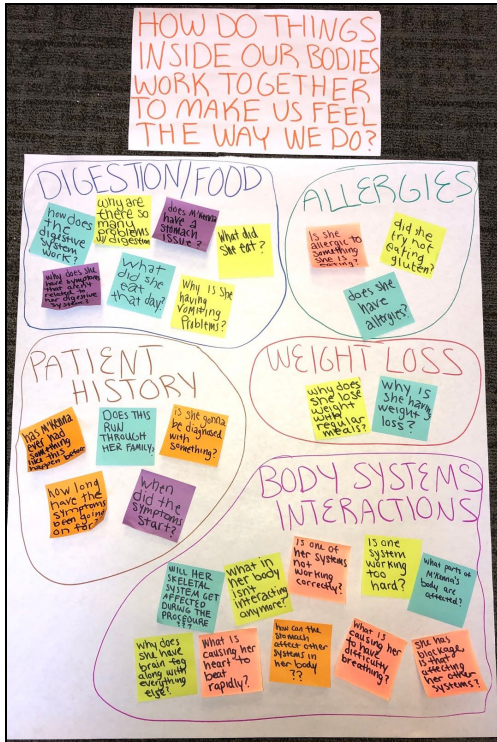 HOW DO THINGS
INSIDE OUR BODIES
WORK TOGETHER
TO MAKE US FEEL
THE WAY WE DO?
DIGESTION/FOOD
how does
the
digestive
system
work?
why are
there so
many
problems
w/digestion
does M'Kenna
have a
stomach
issue?
What did
she eat?
why does she
have symptoms
that aren't
related to
her digestive
system?
what
did she
eat
that day?
Why is she
having
vomiting
problems?
ALLERGIES
Is she
allergic to
something
she is
eating?
did she
try not
eating
gluten?
does she
have
allergies?
PATIENT
HISTORY
has M'Kenna
ever had
something
like this
happen before
DOES THIS
RUN
THROUGH
HER FAMILY?
is she gonna
be diagnosed
with
something?
how long
have the
symptoms
been going
on for?
when
did the
symptoms
start?
WEIGHT LOSS
why does
she lose
weight
with
regular
meals?
Why is
she having
weight
loss?
BODY SYSTEMS
INTERACTIONS
WILL HER
SKELETAL
SYSTEM GET
AFFECTED
DURING THE
PROCEDURE
???
what in
her body
isn't
interacting
anymore?
Is one of
her systems
not
working
correctly?
Is one
system
working
too
hard?
What parts of
M'Kenna's
body are
affected?
Why does
she have
brain fog
along with
everything
else?
What is
causing her
heart to
beat
rapidly?
how can the
stomach
affect other
systems in
her body
??
What is
causing her
to have
difficulty
breathing?
She has
blackage
is that
affecting
her other
systems?